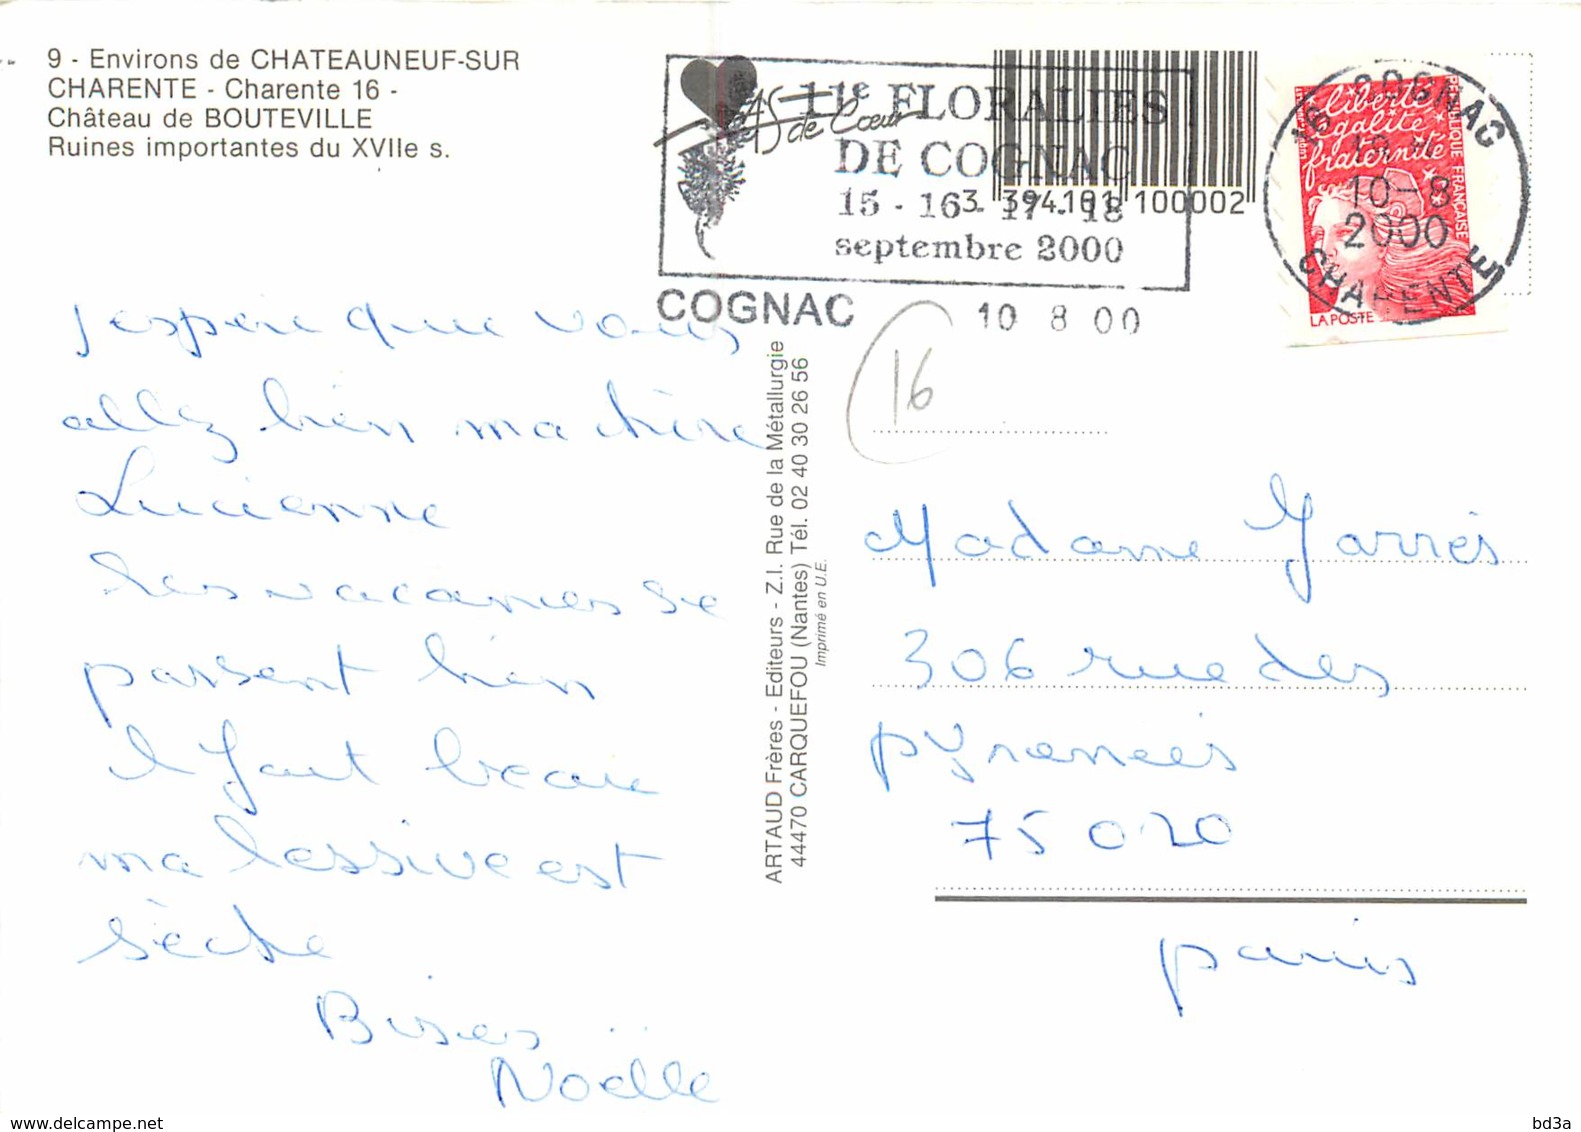 9 - Environs de CHATEAUNEUF-SUR
CHARENTE - Charente 16 -
Château de BOUTEVILLE
Ruines importantes du XVIIe s.
AS de Cœur
11e FLORALIES
DE COGNAC
15 - 16 - 17 - 18
septembre 2000
3 394101 100002
COGNAC
10 8 00
16 COGNAC
10-8
2000
CHARENTE
liberté
égalité
fraternité
RÉPUBLIQUE FRANÇAISE
LA POSTE
16
j'espère que vous
allez bien ma chère
Lucienne
les vacances se
passent bien
il fait beau
ma lessive est
sèche
Bises
Noëlle
ARTAUD Frères - Editeurs - Z.I. Rue de la Métallurgie
44470 CARQUEFOU (Nantes) Tél. 02 40 30 26 56
Imprimé en U.E.
Madame Jarrès
306 rue des
pyrenées
75020
paris
www.delcampe.net
bd3a